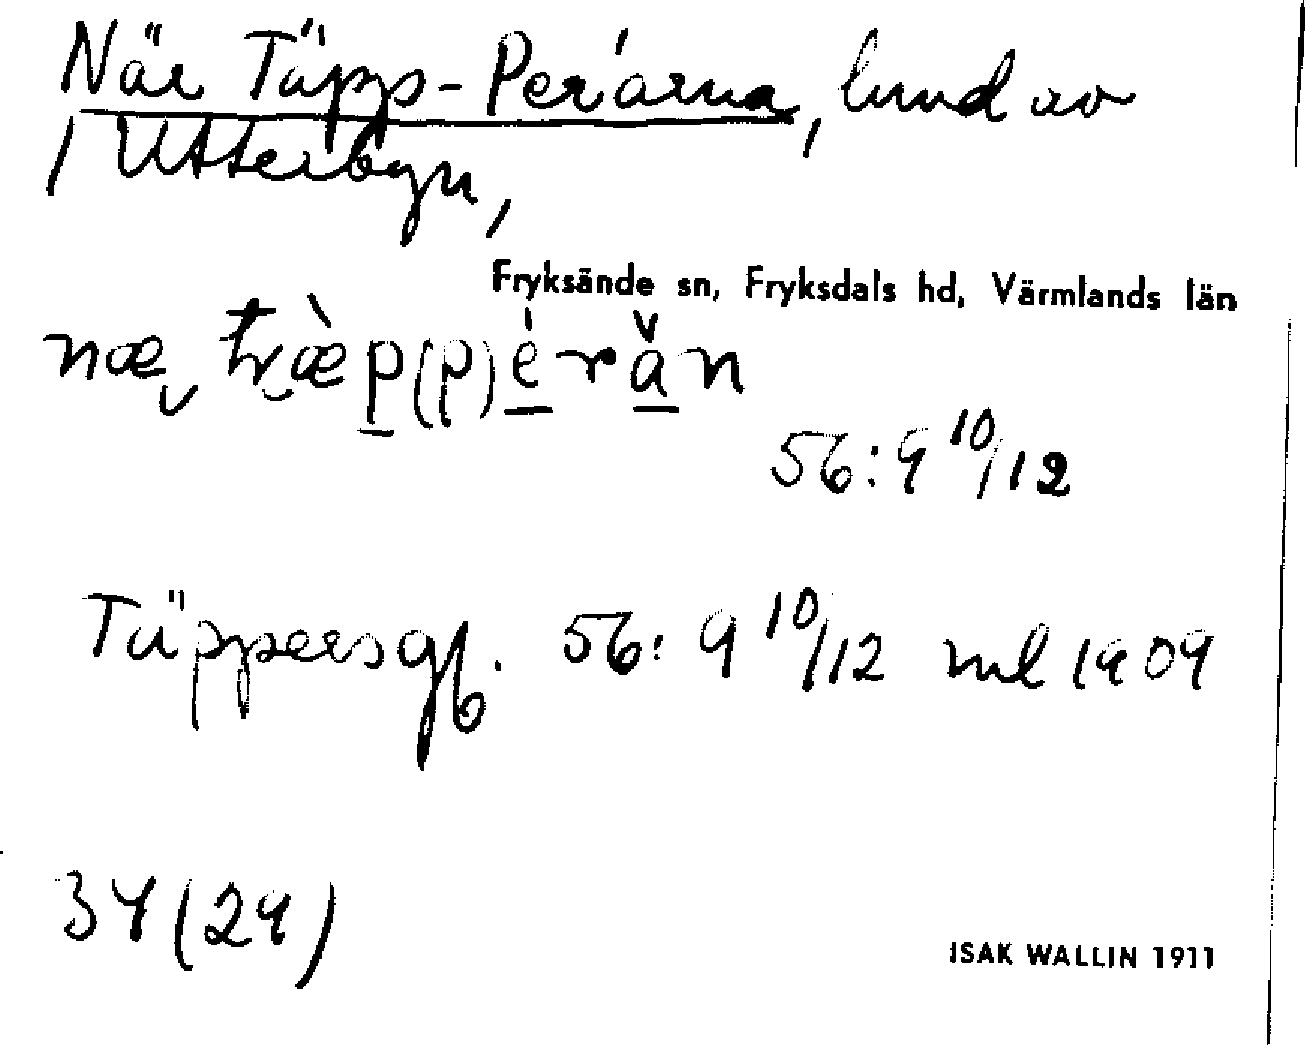 När Täpp-Per'arna, lund av
/ Utterbyn,
Fryksände sn, Fryksdals hd, Värmlands län
56:9 10/12
Täppersgb. 56:9 10/12 ml 1909
34(24)
ISAK WALLIN 1911